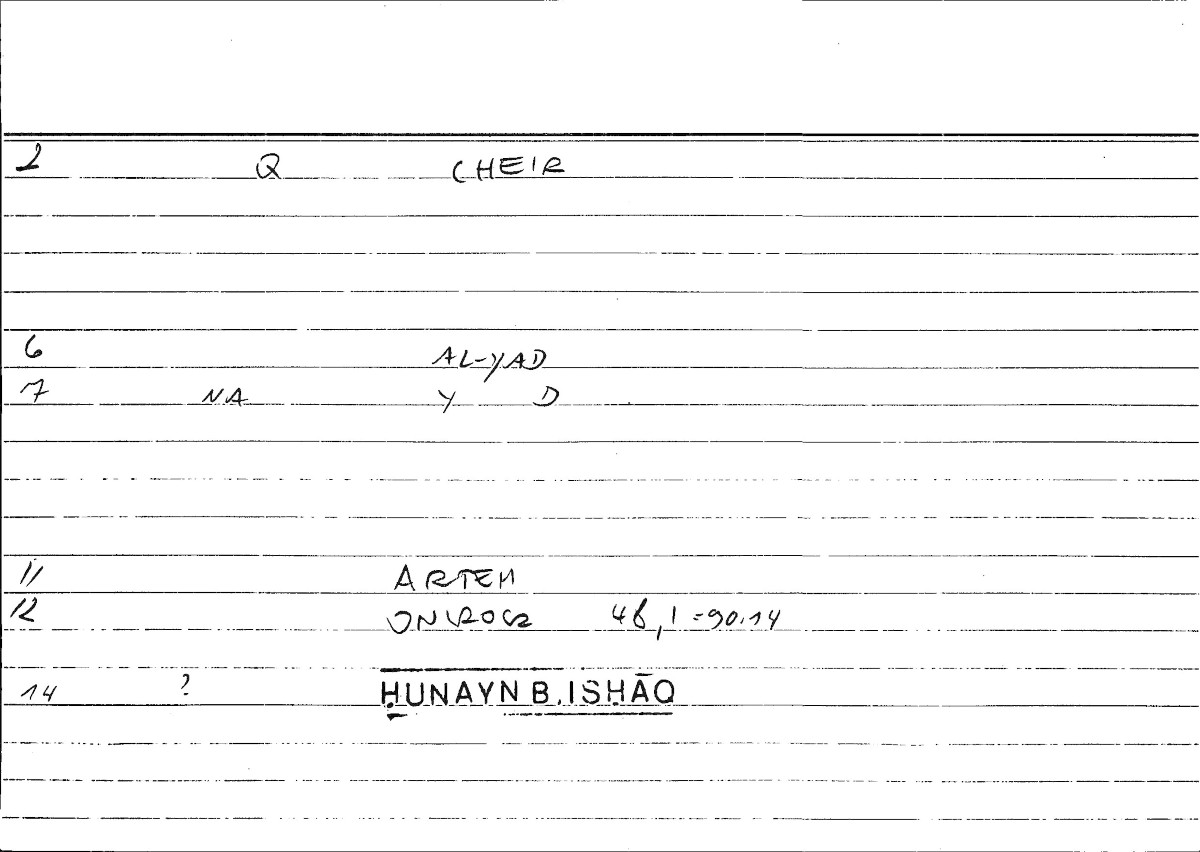 2 Q CHEIR
6 AL-YAD
7 NA Y D
11 ARTEM
12 ONIROCR 48,1=90.14
14 ? ḤUNAYN B. ISḤĀQ